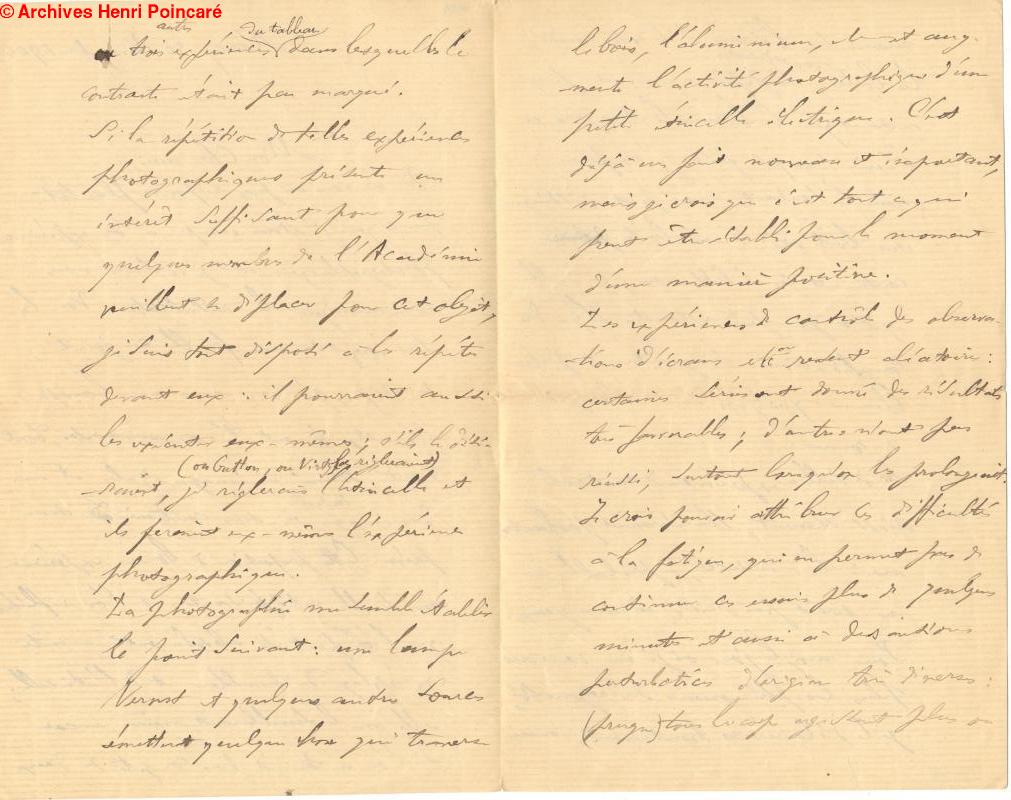 © Archives Henri Poincaré
autres
du tableau
ou trois expériences dans lesquelles le
contraste était peu marqué.
Si la répétition de telles expériences
photographiques présente un
intérêt suffisant pour que
quelques membres de l'Académie
veuillent se déplacer pour cet objet,
je suis tout disposé à les répéter
devant eux : il pourraient aussi
les exécuter eux-mêmes ; s'ils le dési-
(ou Gutton, ou Virtz les règleraient)
raient, je règlerais l'étincelle et
ils feraient eux-mêmes l'expérience
photographique.
La photographie me semble établir
le point suivant : une lampe
Nernst et quelques autres sources
émettent quelque chose qui traverse
le bois, l'aluminium, etc et aug-
mente l'activité photographique d'une
petite étincelle électrique. C'est
déjà un fait nouveau et important,
mais je crois que c'est tout ce qui
peut être établi pour le moment
d'une manière positive.
Les expériences de contrôle des observa-
tions d'écrans etc restent aléatoires :
certaines séries ont donné des résultats
très favorables ; d'autres n'ont pas
réussi, surtout lorsqu'on les prolongeait.
Je crois pouvoir attribuer ces difficultés
à la fatigue, qui ne permet pas de
continuer ces essais plus de quelques
minutes et aussi à des actions
perturbatrices d'origine très diverses :
(presque) tous les corps agissent plus ou